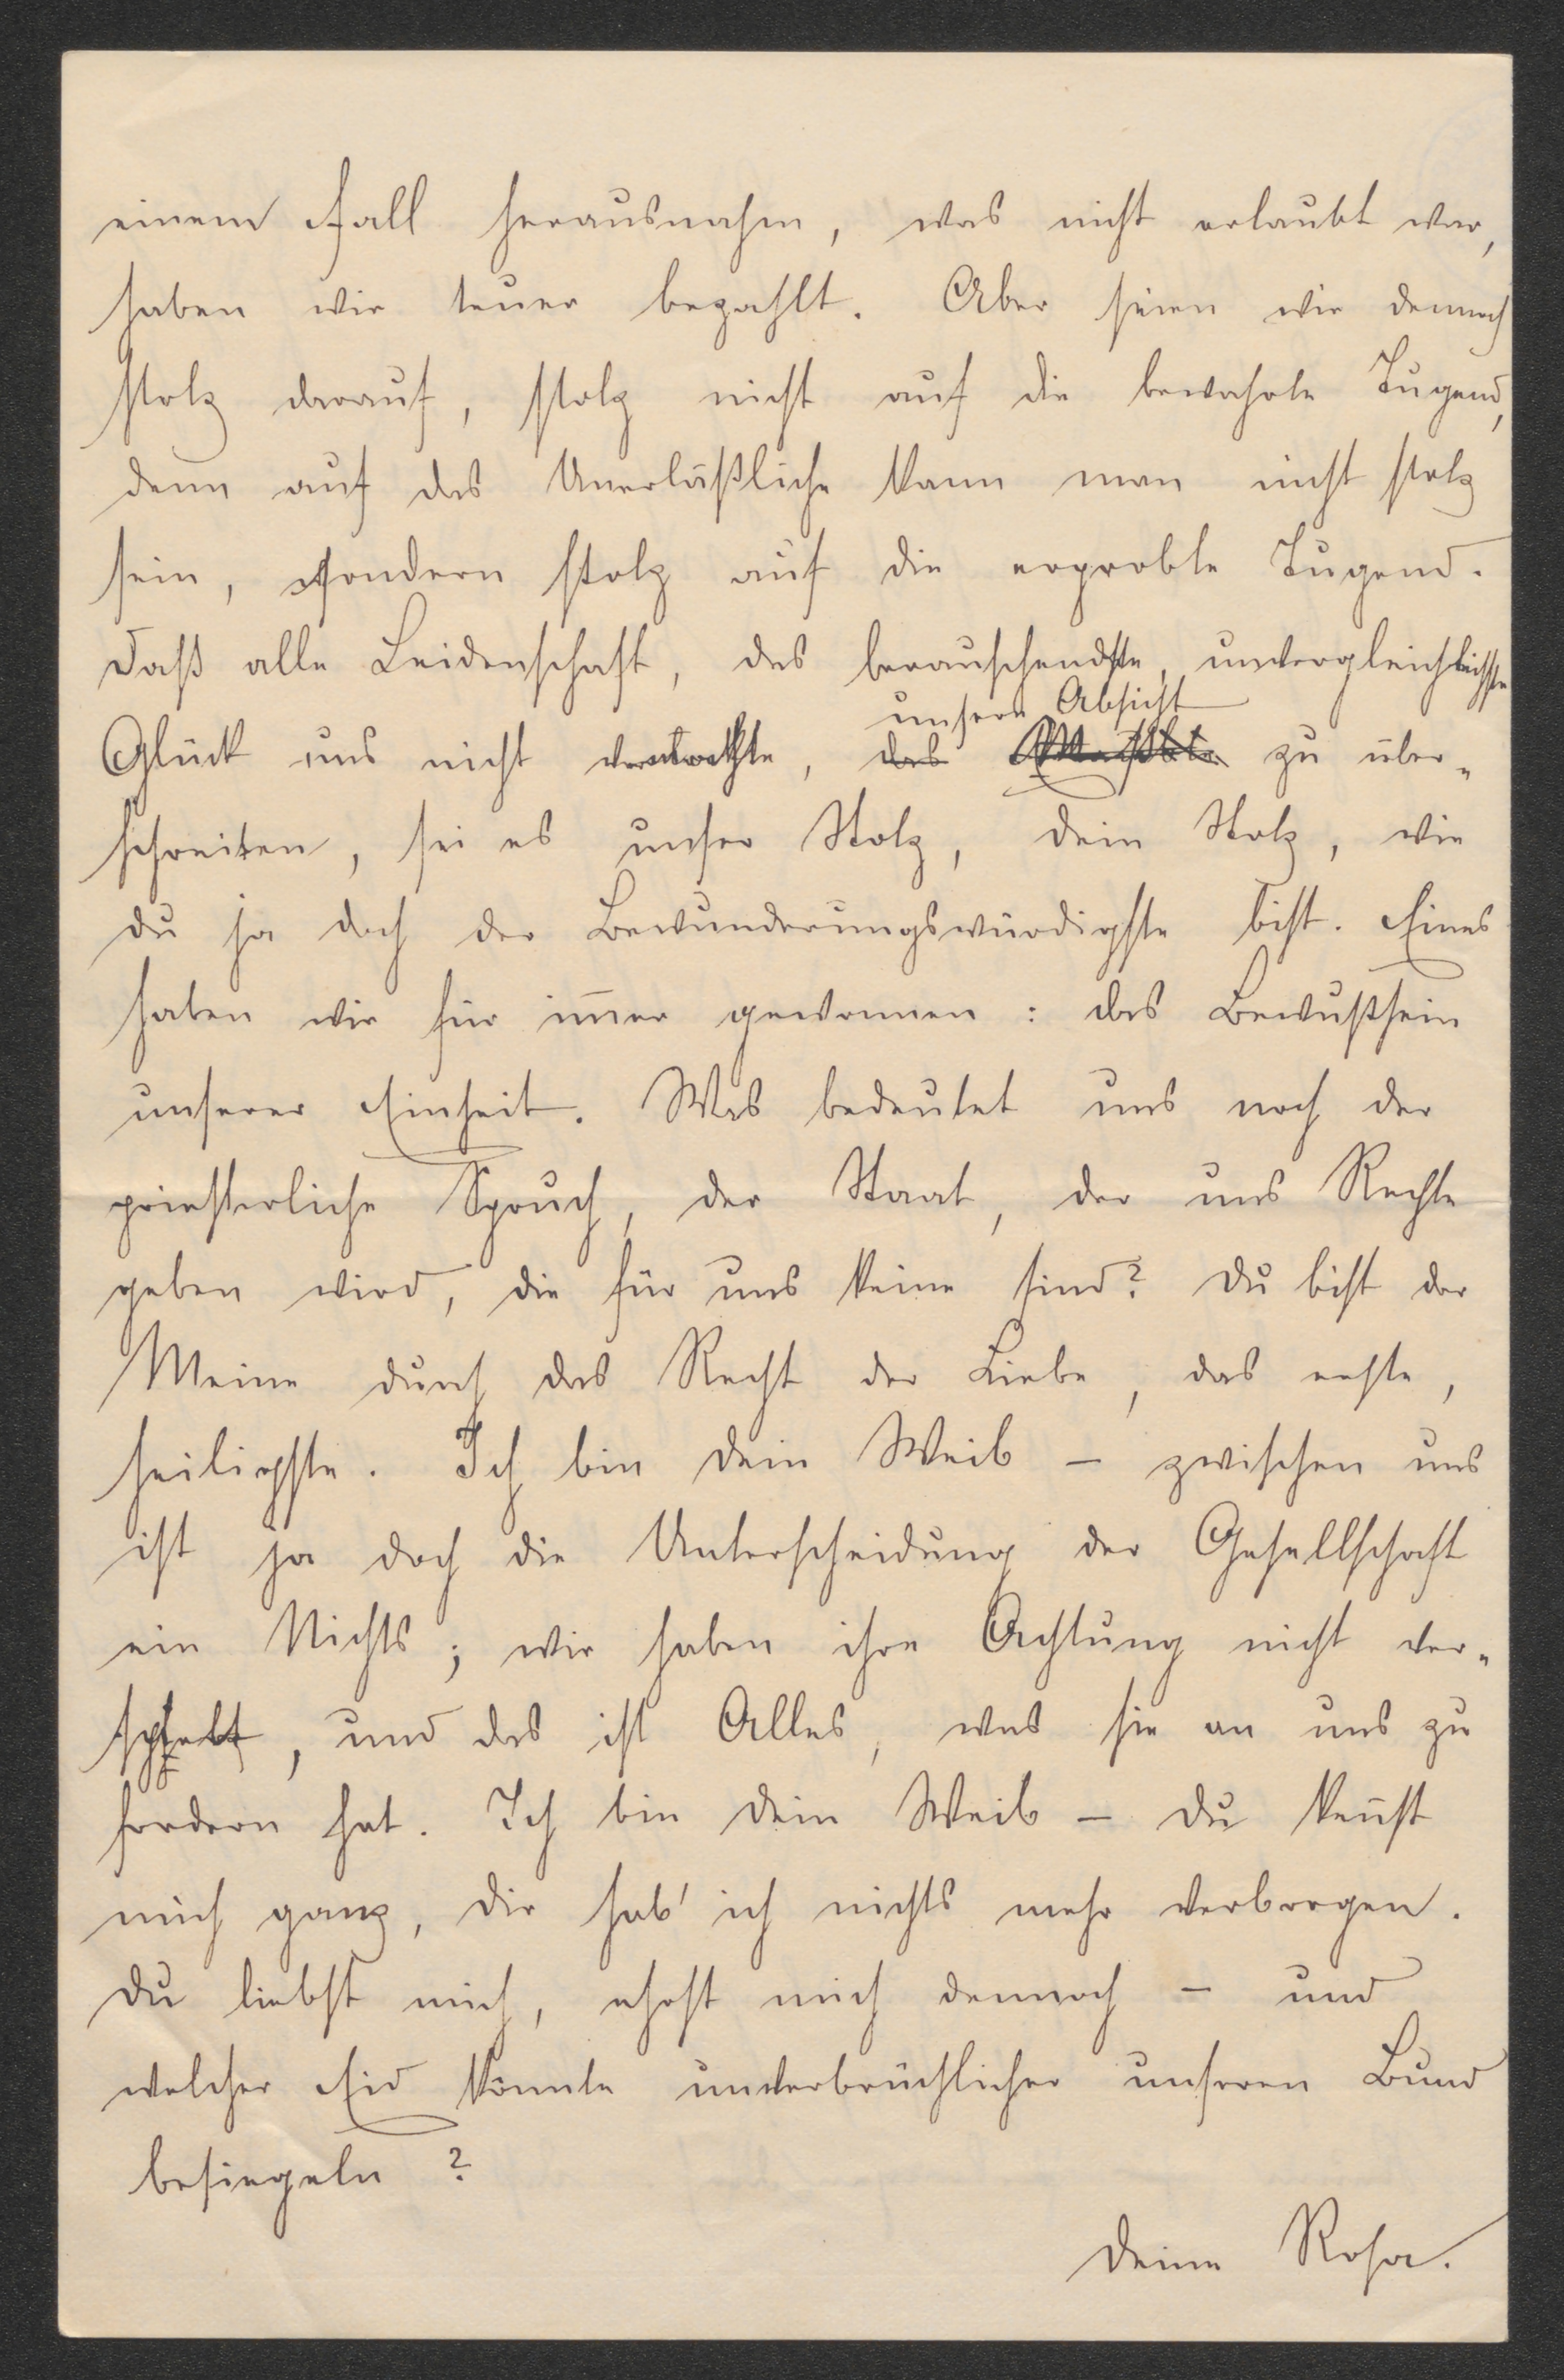 einem Fall herausnahm, was nicht erlaubt war,
haben wir teuer bezahlt. Aber seien wir dennoch
stolz darauf, stolz nicht auf die bewahrte Tugend,
denn auf das Unerläßliche kann man nicht stolz
sein, sondern stolz auf die erprobte Tugend.
Daß alle Leidenschaft, das berauschendste, unvergleichlichste
unsere Absicht
Glück uns nicht verlockte, das zu über-
schreiten, sei es unser Stolz, Dein Stolz, wie
Du ja doch der Bewunderungswürdigste bist. Eines
haben wir für im̅er gewonnen: das Bewußtsein
unserer Einheit. Was bedeutet uns noch der
priesterliche Spruch, der Staat, der uns Rechte
geben wird, die für uns keine sind? Du bist der
Meine durch das Recht der Liebe, das erste,
heiligste. Ich bin Dein Weib – zwischen uns
ist ja doch die Unterscheidung der Gesellschaft
ein Nichts; wir haben ihre Achtung nicht ver-
, und das ist Alles, was sie an uns zu
fordern hat. Ich bin Dein Weib – Du ken̅st
mich ganz, Dir hab' ich nichts mehr verborgen.
Du liebst mich, ehrst mich dennoch – und
welcher Eid könnte unverbrüchlicher unseren Bund
besiegeln?
Deine Rosa.